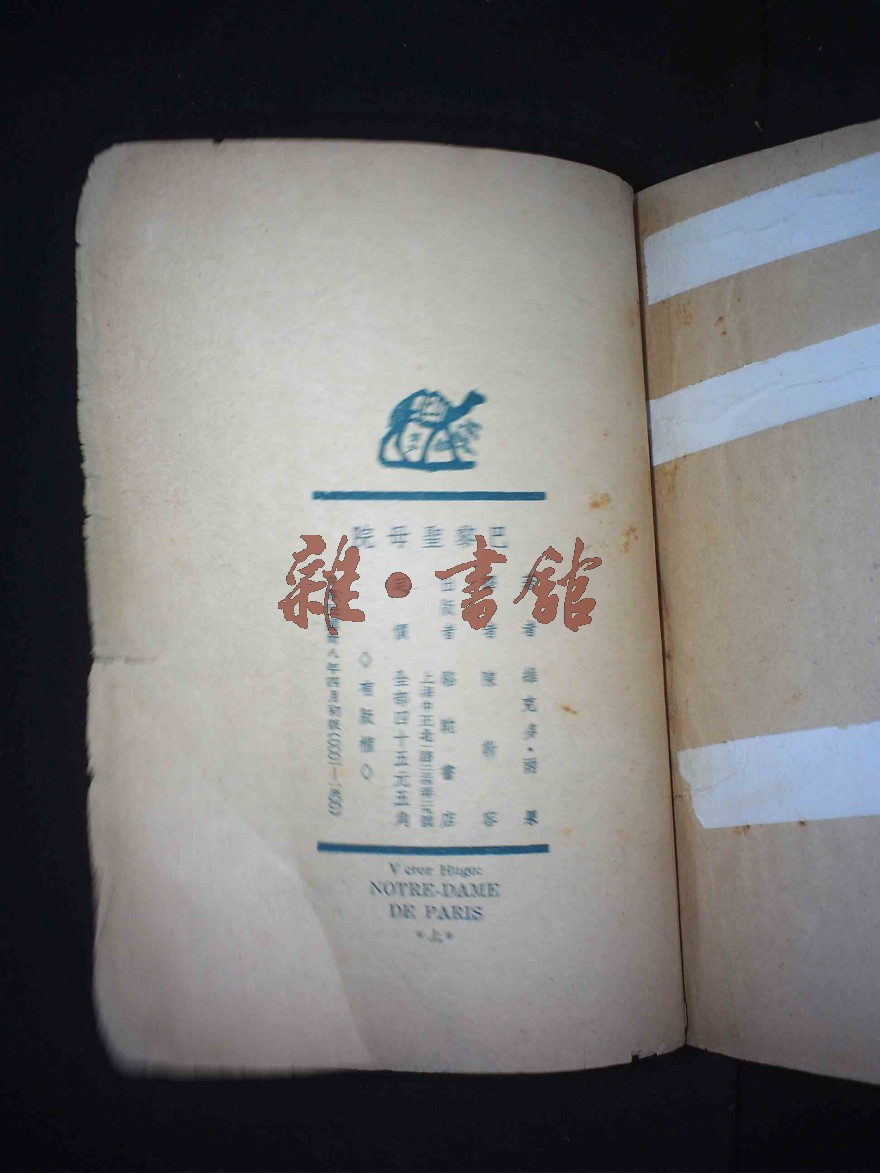 巴黎聖母院
著者 維克多·雨果
譯者 陳敬容
出版者 駱駝書店
上海中正北一路
價 全部四十五元五角
◇有版權◇
八年四月初版
Victor Hugo:
NOTRE-DAME
DE PARIS
*上*
雜·書館